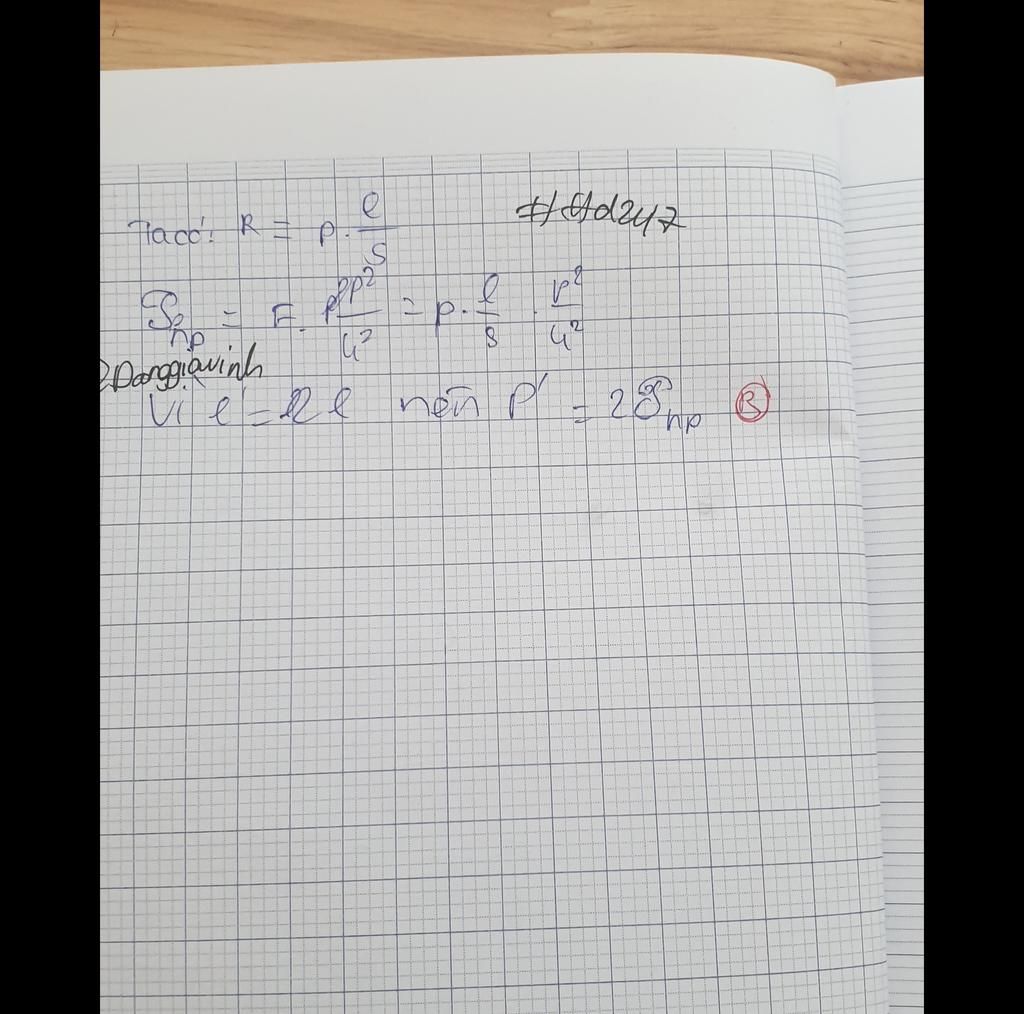 Ta có: R = p. l/S #Hd247
P hp = R. P²/U² = p. l/S . P²/U²
Danggiavinh
Vì l' = 2l nên P' = 2P hp B